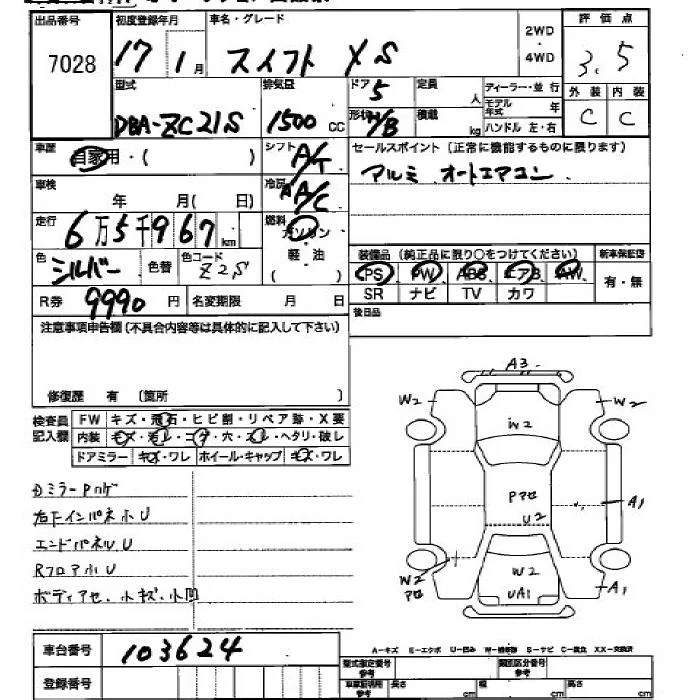 出品番号 初度登録年月 車名・グレード 2WD 評価点
7028 17 1月 スイフト XS 4WD 3.5
型式 排気量 ドア 5 定員 人 ディーラー・並行 外装 内装
DBA-ZC21S 1500 CC 形状 H/B 積載 kg モデル年式 年 C C
ハンドル 左・右
車歴 自家用・( ) シフト A/T セールスポイント (正常に機能するものに限ります)
アルミ オートエアコン
車検 年 月( 日) 冷房 A/C
走行 6万5千967km 燃料 ガソリン
軽油
( )
色 シルバー 色替 色コード Z2S
装備品 (純正品に限り○をつけてください) 新車保証書
PS PW ABS エアB AW 有・無
SR ナビ TV カワ
R券 9990円 名変期限 月 日 後日品
注意事項申告欄(不具合内容等は具体的に記入して下さい)
修復歴 有 (箇所 )
検査員 FW キズ・飛石・ヒビ割・リペア跡・X要
記入欄 内装 キズ・汚レ・コゲ・穴・スレ・ヘタリ・破レ
ドアミラー キズ・ワレ ホイール・キャップ キズ・ワレ
ミラーPハゲ
右下インパネ小U
エンドパネルU
Rフロア小U
ボディアセ、小キズ、小凹
A3
W2 W2
W2
Pアセ
A1
U2
W2 W2
アセ UA1 A1
車台番号 103624
登録番号
A-キズ E-エクボ U-凹み W-補修跡 S-サビ C-腐食 XX-交換済
型式指定番号 参考 類別区分番号 参考
車庫証明用 参考 長さ cm 幅 cm 高さ cm